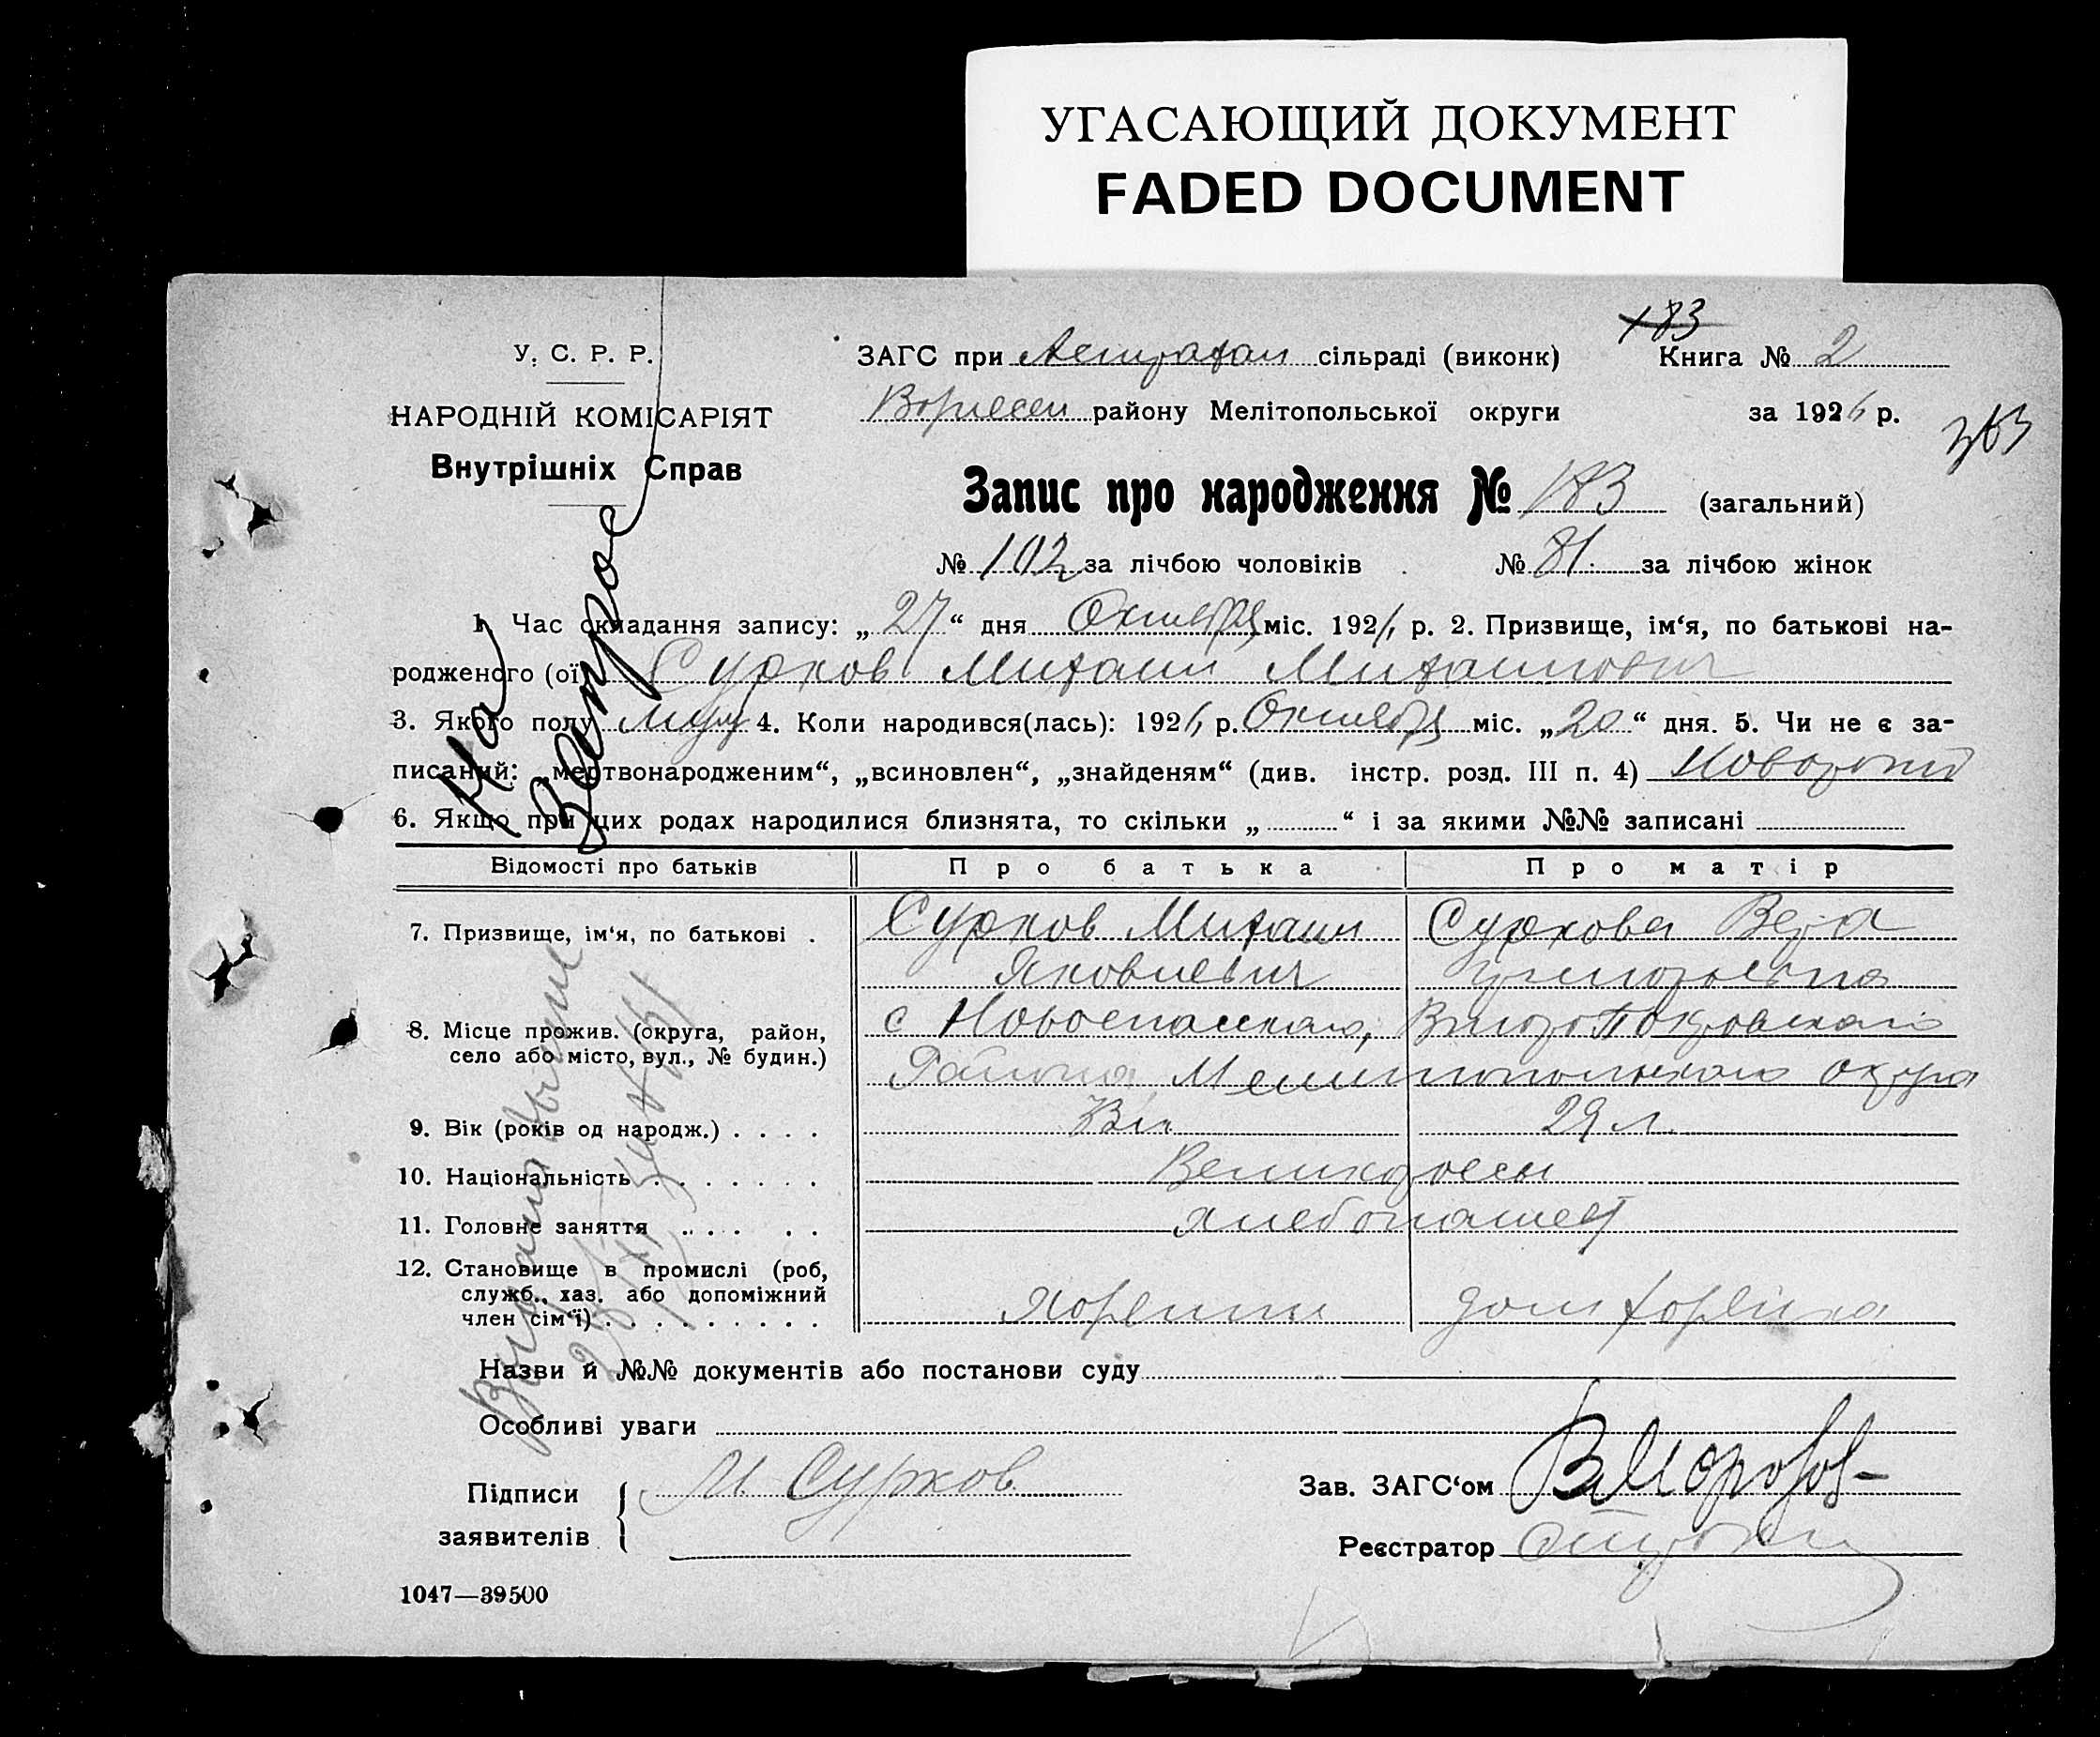 УГАСАЮЩИЙ ДОКУМЕНТ
FADED DOCUMENT
183
У. С. Р. Р.
НАРОДНІЙ КОМІСАРІЯТ
Внутрішніх Справ
ЗАГС при сільраді (виконк) Книга № 2
району Мелітопольської округи за 1926 р.
Запис про народження № 183 (загальний)
№ 102 за лічбою чоловіків № 81. за лічбою жінок
1. Час складання запису: „27“ дня Октября міс. 1926 р. 2. Призвище, ім‘я, по батькові на-
родженого (ої) Сурков Михаил Михаилович
3. Якого полу муж 4. Коли народився(лась): 1926 р. Октября міс. „20“ дня. 5. Чи не є за-
писаний: „мертвонародженим“, „всиновлен“, „знайденям“ (див. інстр. розд. III п. 4)
6. Якщо при цих родах народилися близнята, то скільки „ “ і за якими №№ записані
На Запрос
Відомості про батьків Про батька Про матір
7. Призвище, ім‘я, по батькові . Сурков Михаил Суркова Вера
Яковлевич Григорьевна
8. Місце прожив. (округа, район, с Новоспасского,
село або місто, вул., № будин.) Района Мелитопольского округа
9. Вік (років од народж.) . . . . 29 л.
10. Національність . . . . . . . Великороссы
11. Головне заняття . . . . . хлебопашест
12. Становище в промислі (роб,
служб., хаз. або допоміжний
член сім‘ї) . . . . . . . . . хозяин дом хозяйка
Назви й №№ документів або постанови суду
Особливі уваги
Підписи М Сурков Зав. ЗАГС‘ом В Морозов
заявителів Реєстратор
1047—39500